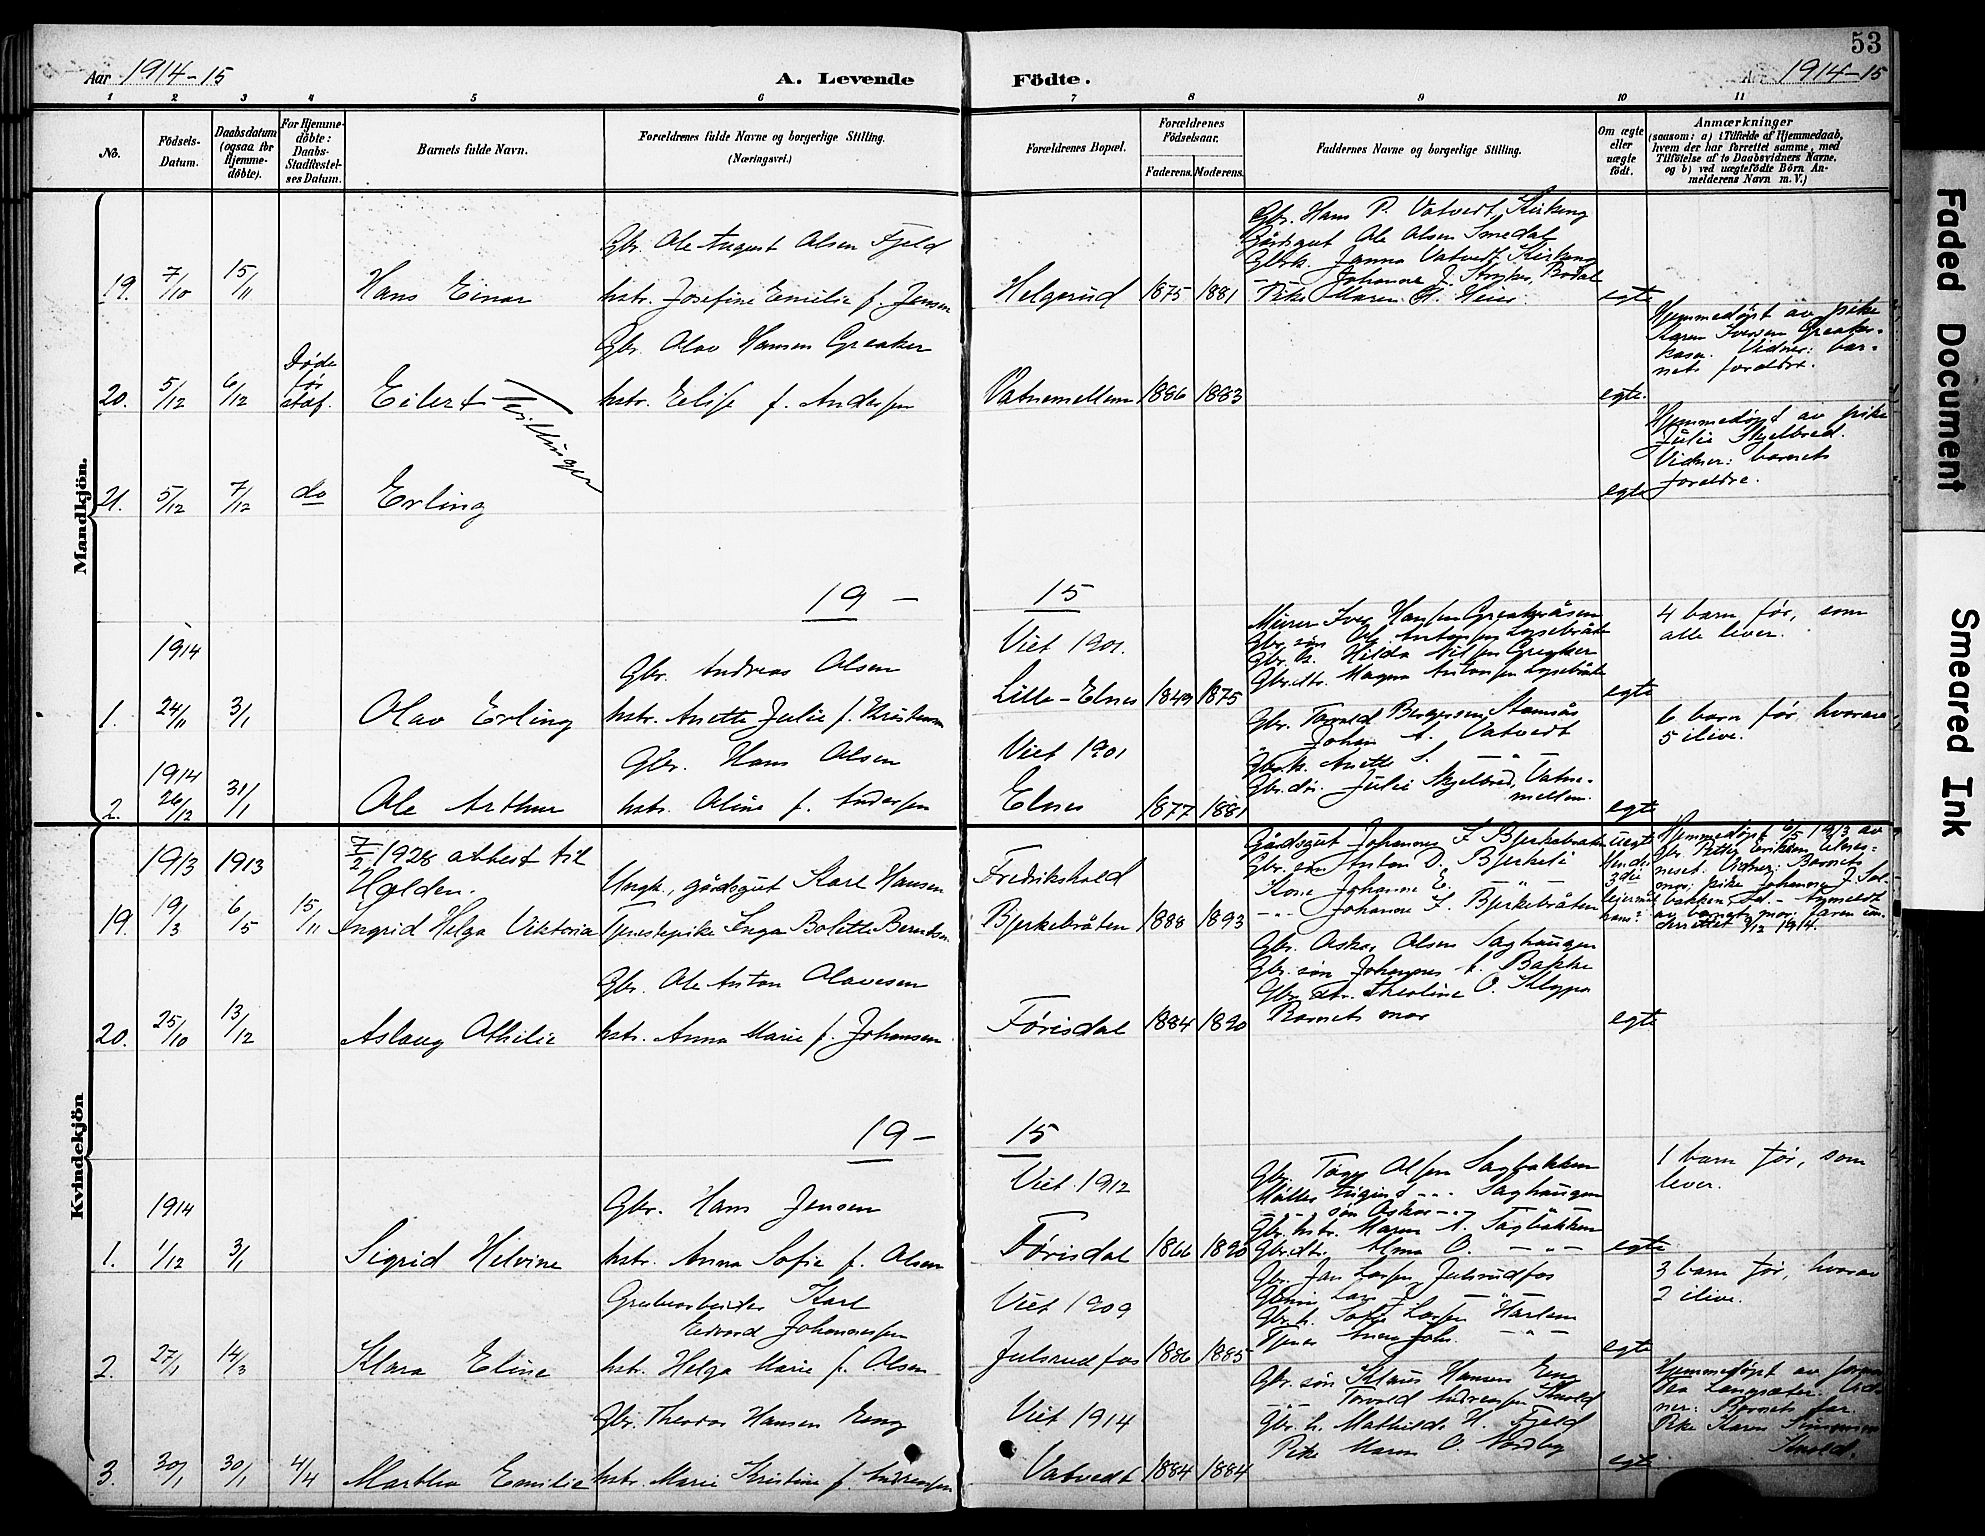 53
Aar 1914-15
A. Levende
Födte.
1914-15
1 2 3 4 5 6 7 8 9 10 11
No.
Födsels-
Datum.
Daabsdatum
(ogsaa for
Hjemme-
döbte).
For Hjemme-
döbte:
Daabs-
Stadfæstel-
ses Datum.
Barnets fulde Navn.
Forældrenes fulde Navne og borgerlige Stilling.
(Næringsvei.)
Forældrenes Bopæl.
Forældrenes
Födselsaar.
Faderens.
Moderens.
Faddernes Navne og borgerlige Stilling.
Om ægte
eller
uægte
födt.
Anmærkninger
(saasom: a) i Tilfælde af Hjemmedaab,
hvem der har forrettet samme, med
Tilföielse af to Daabsvidners Navne,
og b) ved uægtefödte Börn An-
melderens Navn m. V.)
Mandkjön.
Gbr. Ole August Olsen Fjeld
Gbr. Hans P. Vatvedt, Kirkeng
Gårdsgut Ole Olsen Smedal
Gbrk. Janna Vatvedt Kirkeng
Johanne J.
19. 7/10 15/11 Hans Einar hstr. Josefine Emilie f. Jensen Helgerud 1875 1881 Pike Maren H. Heier egte
Gbr. Olav Hansen Greaker
Hjemmedøpt av pike
Karen Iversen Greaker-
kasa. Vidner: bar-
nets foreldre.
Døde
før
stadf.
20. 5/12 6/12 Eilert hstr. Elise f. Andersen Vatnemellem 1886 1883 egte.
Tvillinger
Hjemmedøpt av pike
Julie Skjelbred.
Vidner: barnets
foreldre.
21. 5/12 7/12 do Erling egte
19 — 15
Viet 1901.
Murer Iver Hansen Greakeråsen
Gbr. søn Ole Antonsen Lysebråte
Gbr. h. Hilda Nilsen Greaker
Gbr.dtr. Magna Antonsen Lysebråte
4 barn før, som
alle lever.
1914
Gbr. Andreas Olsen
1. 24/11 3/1 Olav Erling hstr. Anette Julie f. Kristensen Lille-Elnes 1849 1875 egte
Viet 1901
Gbr. Torvald Bergersen Stamnås
Johan A. Vatvedt
Gbrk. Anette S. — " —
Gbr.dtr. Julie Skjelbred, Vatne-
mellem.
6 barn før, hvorav
5 ilive.
1914
Gbr. Hans Olsen
2. 26/12 31/1 Ole Arthur hstr. Oline f. Andersen Elnes 1877 1881 egte
Kvindekjön
1913 1913
7/2 1928 attest til
Halden.
Ungk., gårdsgut Karl Hansen
Fredrikshald
Gårdsgut Johannes I. Bjerkebråten
Gbr. søn Anton O. Bjerkeli
Kone Johanne E. — " —
— " — Johanne I. Bjerkebråten
uegte
Hendes
3die
leiermål
hans?
Hjemmedøpt 6/5 1913 av
Gbr. Petter Eriksen Elnes-
neset. Vidner: Barnets
mor; pike Johanne J. Sol-
bakken
av barnets mor; faren
9/12 1914.
19. 19/3 6/5 15/11 Ingrid Helga Viktoria Tjenestepike Inga Bolette Berntsen Bjerkebråten 1888 1893
Gbr. Ole Anton Olavesen
Gbr. Oskar Olsen Saghaugen
Gbr. søn Johannes A. Bakke
Gbr. dtr. Theoline O. Kleppa
Barnets mor
20. 25/10 13/12 Aslaug Othilie hstr. Anna Marie f. Johansen Førisdal 1884 1890 egte
19 — 15
Viet 1912
Gbr. Olsen Sagbakken
Møller August — " — Saghaugen
søn Oskar — " —
Gbr. hstr. Maren A. Sagbakken
Gbr.dtr. Alma O. — " —
1 barn før, som
lever.
1914
Gbr. Hans Jensen
1. 1/12 3/1 Sigrid Helvine hstr. Anna Sofie f. Olsen Førisdal 1866 1890 egte
Grubearbeider Karl
Edvard Johannesen
Viet 1909
Gbr. Jan Larsen, Julsrudfos
Gbr. h. Sofie Larsen Harlem
3 barn før, hvorav
2 ilive.
2. 27/1 14/3 Klara Eline hstr. Helga Marie f. Olsen Julsrudfos 1886 1885 egte
Gbr. Theodor Hansen Eng
Viet 1914
Gbr. søn Klaus Hansen Eng
Torvald Andreassen Knold
Gbr. h. Mathilde H. Fjeld
Pike Maren O. Nordby
Hjemmedøpt av
Thea Langsæter. Vid-
ner: Barnets far.
Pike Karen
Knold.
3. 30/1 30/1 4/4 Martha Emilie hstr. Marie Kristine f. Andreassen Vatvedt 1884 1884 egte
Faded Document
Smeared Ink